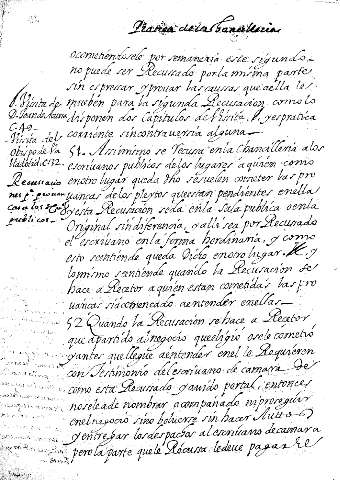 Pratica de la Chancilleria
ocometiendosele por semaneria este segundo
no puede ser Recusado por la misma parte
sin espresar y provar las causas que a ello les
mueben para la segunda Recusacion como lo
disponen dos Capitulos de Visita, y es pratica
corriente sin contraversia alguna
V. Visita de
D. Juan de Acuna
C. 40
Visita del
Obispo de la
Madrid. C. 132
Recusacio
nes
publicos
51. Assimismo se Recusa en la Chancilleria a los
escrivanos publicos de los lugares a quien como
en otro lugar queda dho se suelen cometer las pro
vanças de los pleytos que estan pendientes en ella
y esta Recusacion se da en la Sala publica o en la
Original sin diferencia, y alli se a por Recusado
el escrivano en la forma hordinaria, y como
esto se entiende queda Dicho, en otro lugar. y
lo mismo se entiende quando la Recusacion se
hace a Recetor a quien estan cometidas las pro
vanças sin comencado a entender en ellas
52 Quando la Recusacion se hace a Recetor
que a partido al negocio que eligio o se le cometio
y antes que llegue a entender en el le Requieren
con Testimonio del escrivano de camara de
como esta Recusado y avido por tal, entonces
no se le a de nombrar acompañado ni proseguir
en el negocio sino bolverse sin hacer Autto
y entregar los despachos al escrivano de camara
pero la parte que le Recussa le deve pagar el